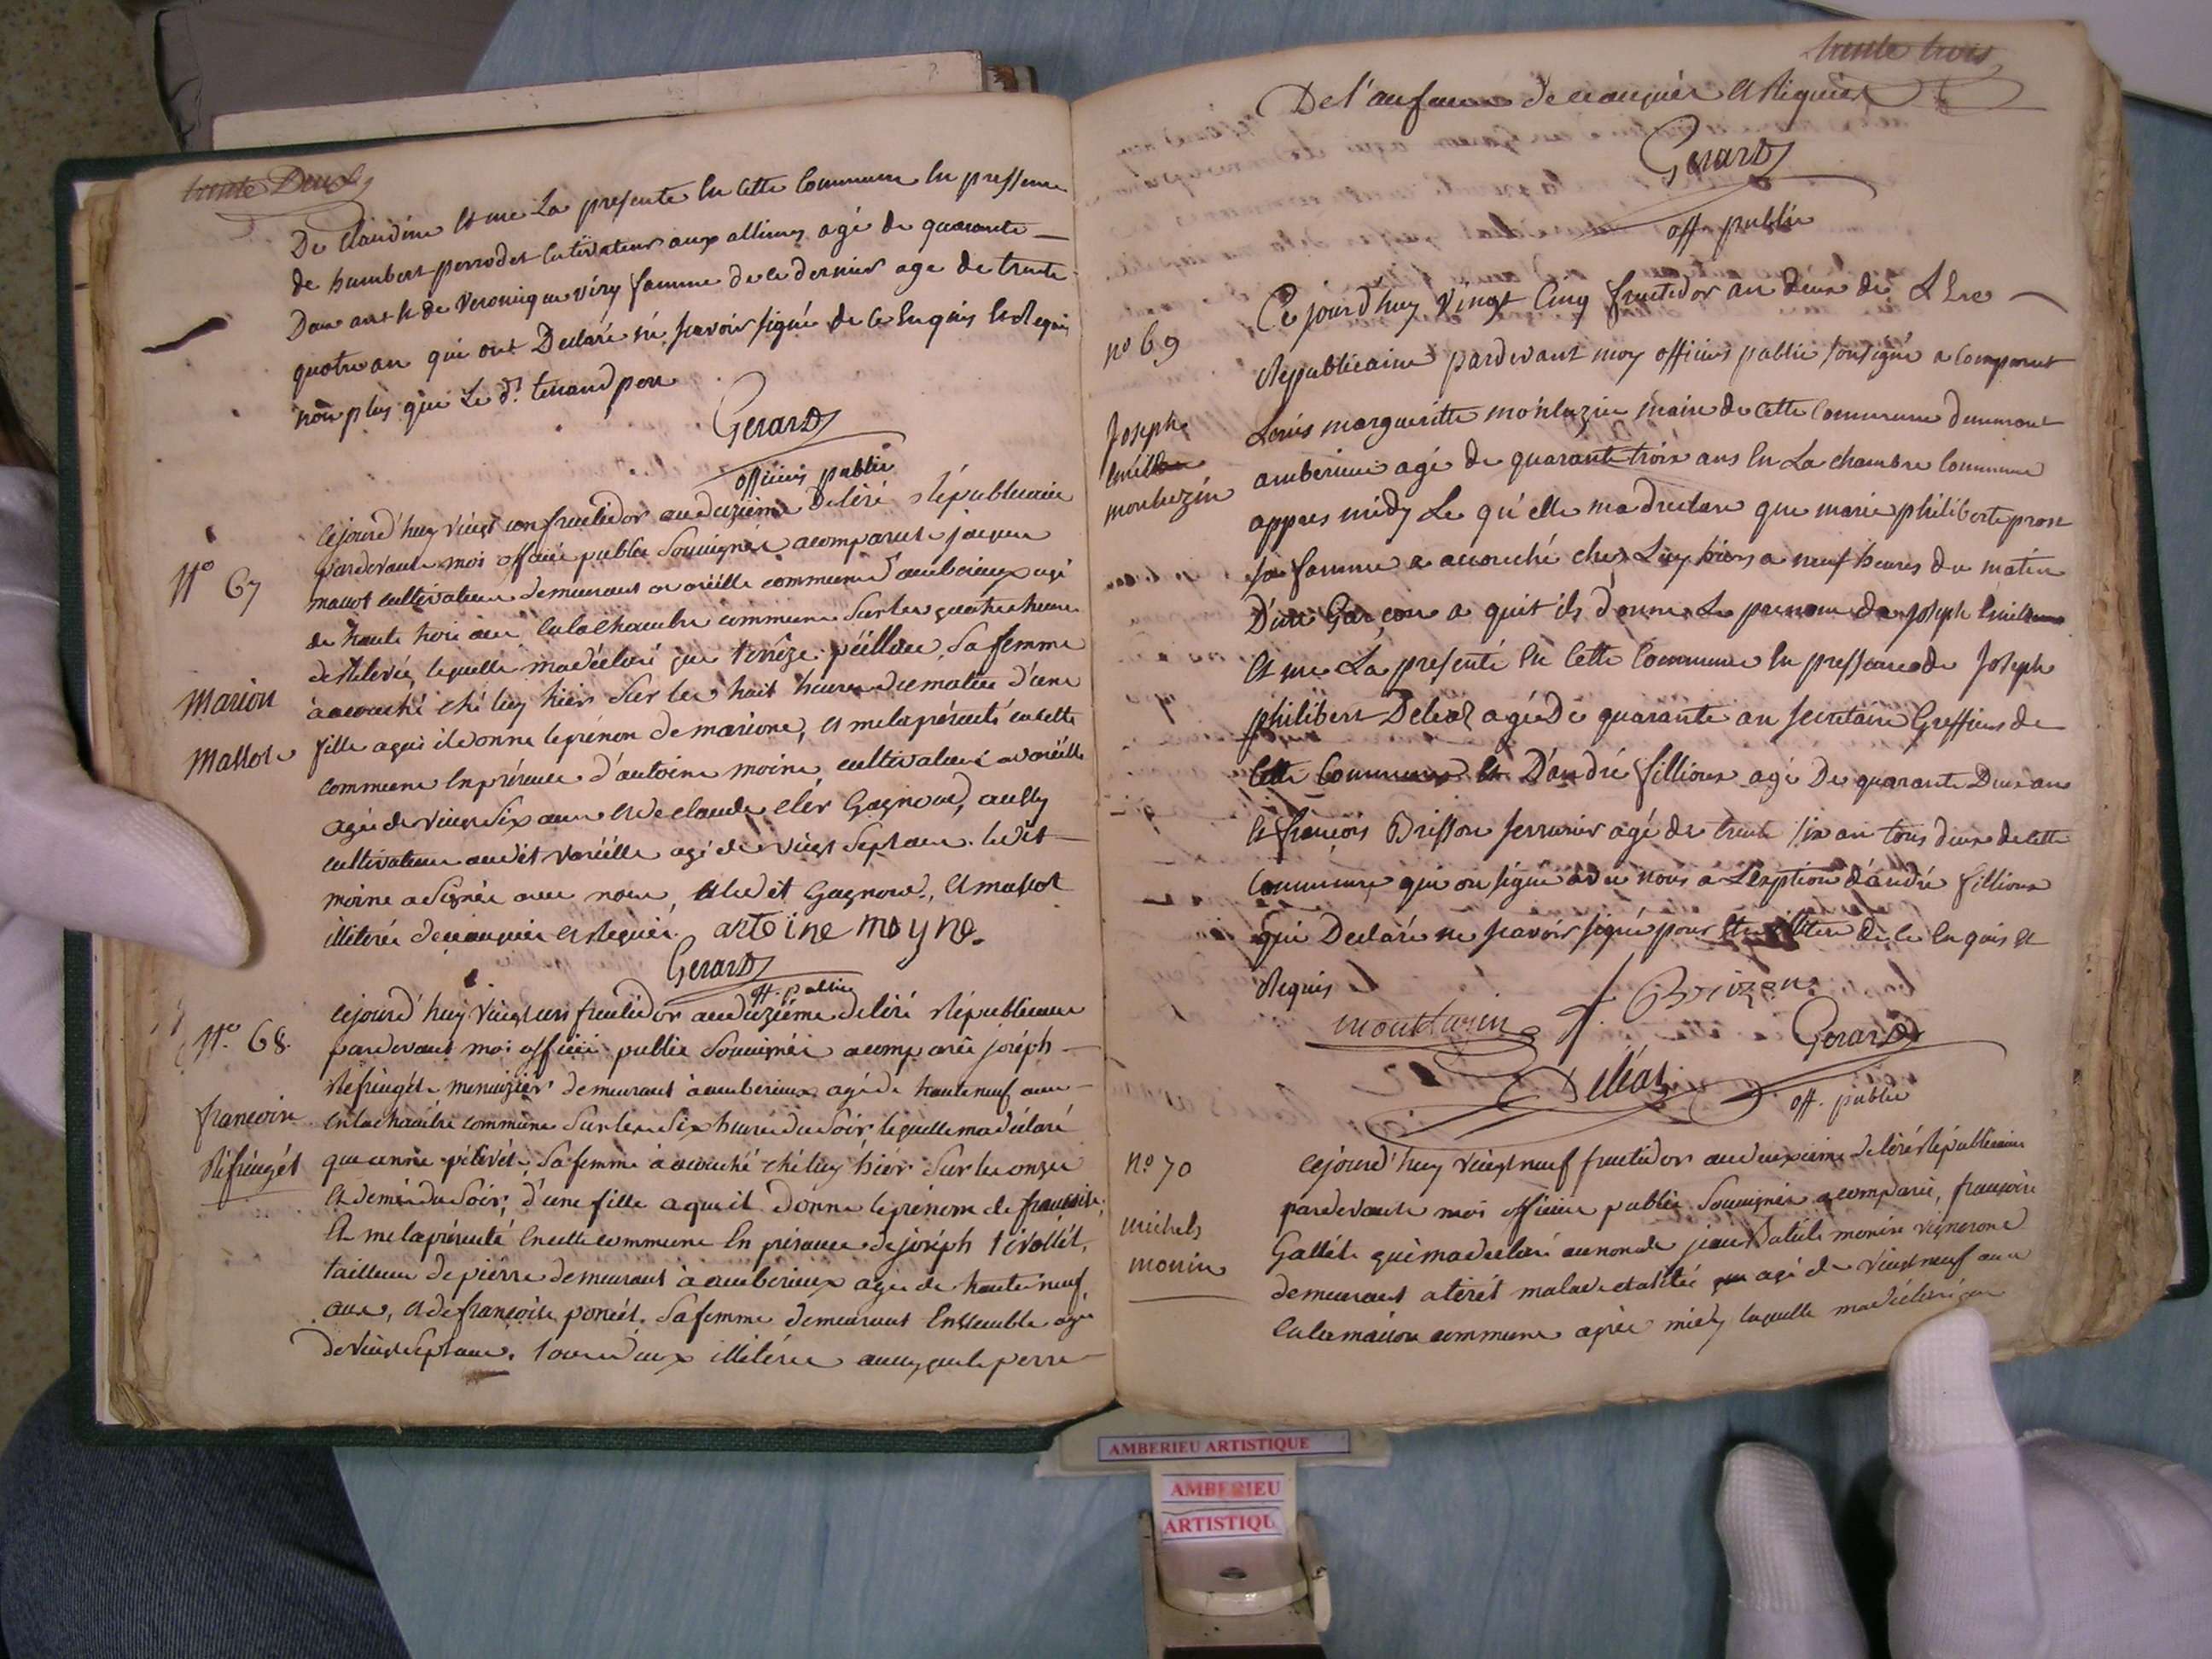 trente Deux
De Claudine et me La presente En Cette Commune En pressence
de humbert perrodet Cultivateur aux allimes agé de quarante
Deux ans et de Veronique viry famme de ce dernier age de trente
quatre an qui ont Declaré né scavoir signé de Ce Enquis et Requis
non plus que Le d.t tenand pere
Gerard
officier public
Nº 67
Marion
Mallot
cejourd'huy vingt un fructidor audeuzieme deléré républicain
pardevant moi officié public Souuigniée acomparut jaque
mallot cultivateur demeurant a varéille commune d'amberieux agé
de trante trois ans en la chambre commune Sur les quatre heure
de Relevée, lequelle madéclaré que térrêze péillod Sa femme
à acouché ché luy hiér Sur les huit heures du matin d'une
fille aqui il donne le prénom de marione, et melaprésenté encette
commune En présence d'antoine moine cultivateur a varéille
agée de vingt Six ans et de claude clér Gagneux, aussy
cultivateur audit varéille agé de vingt Sept ans. ledit
moine a Signée avec nous, et ledit Gagneux, et mallot
illiterée dece enquiér et Requier. antoine moyne.
Gerard
off. public
Nº 68.
francoise
Réfringét
cejourd'huy vingt un fructidor audeuziéme deléré Républicain
pardevant moi officié public Souuignée acomparu joséph
Refringét menuizier demeurant à amberieux agé de trante neuf ans
en la chambre commune Sur les Six heure du Soir lequelle madéclaré
que anne péllivét Sa femme à acouché ché luy hiér Sur les onze
et demie du Soir, d'une fille a qui il donne le prénom de francoise,
Et me laprésenté En cette commune En présance de joséph tivollét,
tailleur de piérre demeurant à amberieux agée de trante neuf
ans, et de françoise poncét Sa femme demeurant Enssemble agé
de vingt Sept ans. tous deux illitérée aussy que le perre
trente trois
De l'anfance de ce enquiér et Réquiér
Gerard
off public
nº 69
Joseph
monluzin
Ce jourd'huy vingt Cinq fructidor an deux de L Ere
Republicaine pardevant moy officier public sousigné a Comparut
Louis margueritte monluzin maire de cette Commune demeurant
amberieux agé de quarante trois ans En La chambre Commune
appres midy Le qu'elle ma declare que marie philiberte prost
sa famme a accouché chez Luy hiers a neuf heures du matin
D'un Garçon a quit ils donne Le prenom de Joseph
et me La presenté En Cette Commune En presseance de Joseph
philibert Deleaz agé De quarante an secretaire Greffier de
Cette Commune et D'andré fillioux agé De quarante Deux an
et françois Brisson serrurier agé de trente six an tous deux de cette
Commune qui on signé avec nous a L'exption d'andré fillioux
qui Declaré ne scavoir signé pour Etre illitere de ce Enquis et
Requis
monluzin
f. Brizon
Gerard
Deléaz
off. public
nº 70
michel
monin
cejourd'huy vingt neuf fructidor audeuxieme deléré Républicaine
pardevant moi officier public Souuignée acomparue, françoise
Gallét qui madeclaré aunom de jean Batiste monin vigneron
demeurant a tirét malade et alité agé de vingt neuf ans
en la maison commune aprée midy laquelle ma déclaré que
AMBERIEU ARTISTIQUE
AMBERIEU
ARTISTIQU